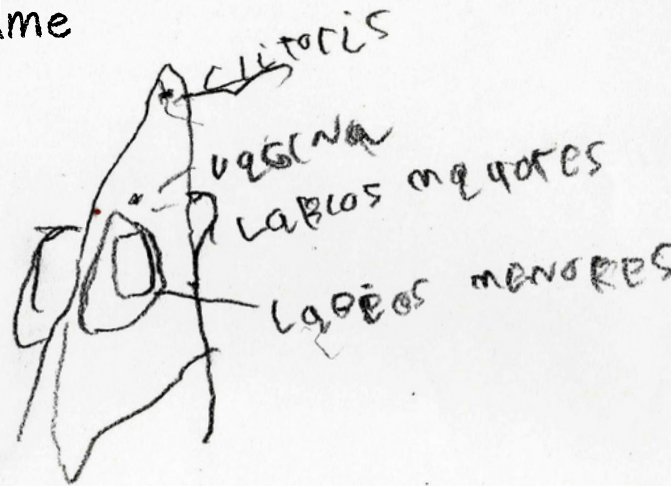 ame
clitoris
vagina
Labios mayores
Labios MENORES